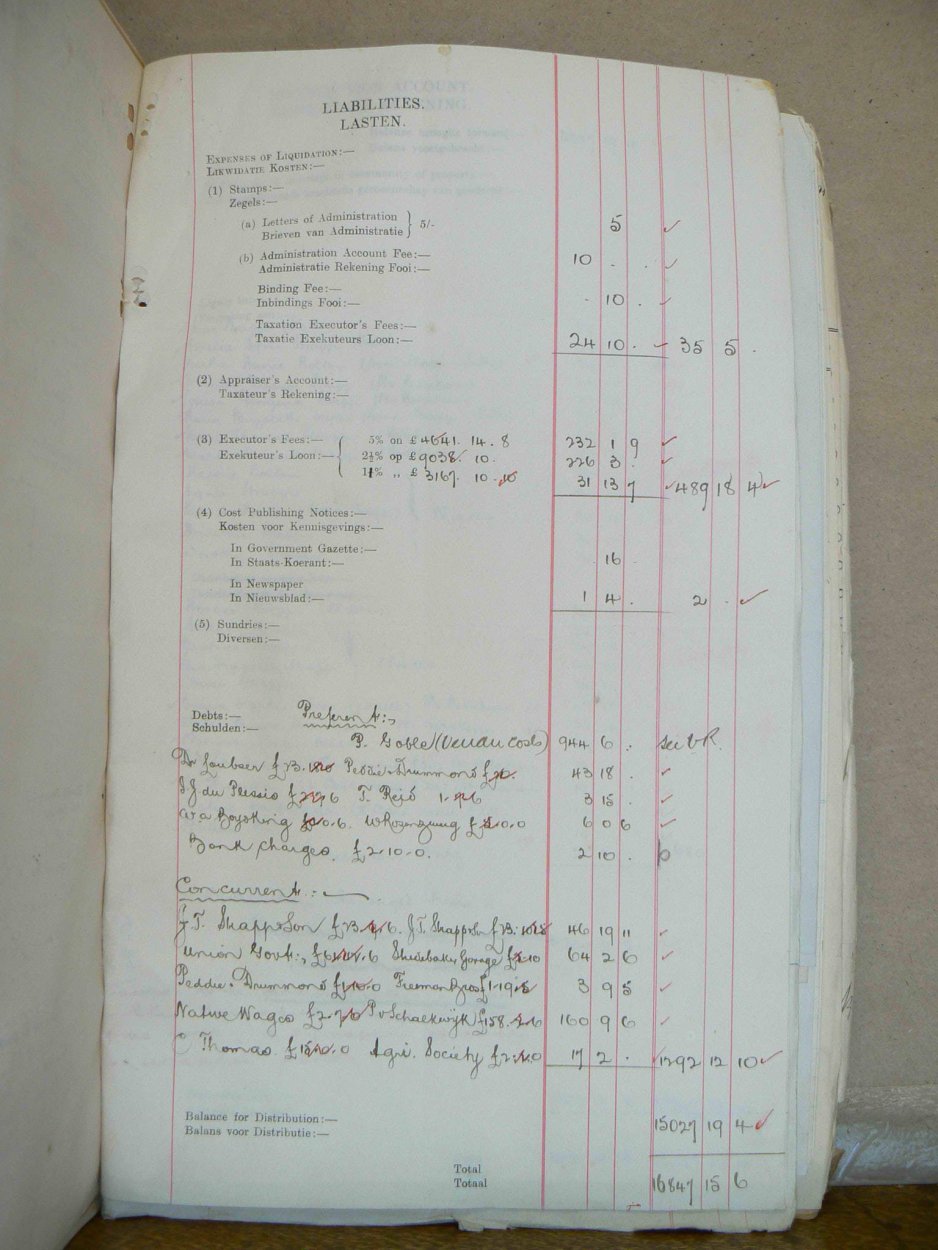 LIABILITIES.
LASTEN.
EXPENSES OF LIQUIDATION:—
LIKWIDATIE KOSTEN:—
(1) Stamps:—
Zegels:—
(a) Letters of Administration
Brieven van Administratie } 5/- 5 ✓
(b) Administration Account Fee:—
Administratie Rekening Fooi:— 10 . . ✓
Binding Fee:—
Inbindings Fooi:— . 10 . ✓
Taxation Executor's Fees:—
Taxatie Exekuteurs Loon:— 24 10 . ✓ 35 5 .
(2) Appraiser's Account:—
Taxateur's Rekening:—
(3) Executor's Fees:— { 5% on £4641. 14. 8 232 1 9 ✓
Exekuteur's Loon:— 2½% op £9038. 10. 226 3 . ✓
1% „ £3167. 10. 10 31 13 7 ✓ 489 18 4 ✓
(4) Cost Publishing Notices:—
Kosten voor Kennisgevings:—
In Government Gazette:—
In Staats-Koerant:— 16
In Newspaper
In Nieuwsblad:— 1 4 . 2 . ✓
(5) Sundries:—
Diversen:—
Debts:— Preferent:-
Schulden:—
P. Goble 944 6 .
Dr Loubser £23. Peddie & Drummond 43 18 . ✓
J J du Plessis T. Reid 3 15 . ✓
6 0 6 ✓
Bank Charges. £2.10.0. 2 10 .
Concurrent:-
J.T. Shapp & Son J.T. Shapp & Son 46 19 11 ✓
Union Govt: Studebaker Garage 64 2 6 ✓
Peddie & Drummond Freeman Bros 3 9 5 ✓
Native Wages P v Schalkwijk 160 9 6 ✓
Thomas Agri. Society 17 2 . ✓ 1292 12 10 ✓
Balance for Distribution:—
Balans voor Distributie:— 15027 19 4 ✓
Total
Totaal 16847 15 6